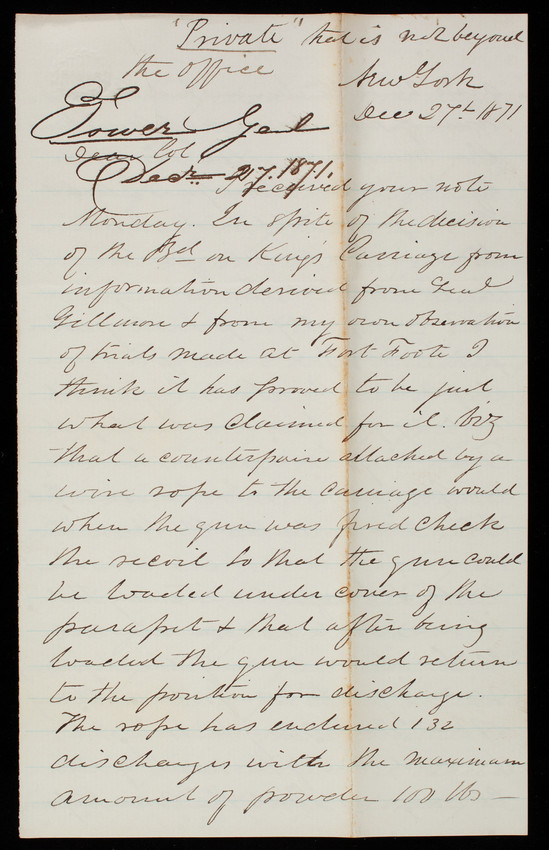 "Private" that is not beyond
the office
New York
Dec 27th 1871
Tower Genl
Dear Col
Decr 27. 1871.
I received your note
Monday. In spite of the decision
of the Bd on King's Carriage from
information derived from Genl
Gillmore & from my own observation
of trials made at Fort Foote I
think it has proved to be just
what was claimed for it. viz
that a counterpoise attached by a
wire rope to the carriage would
when the gun was fired check
the recoil so that the gun could
be loaded under cover of the
parapet & that after being
loaded the gun would return
to the position for discharge.
The rope has endured 132
discharges with the maximum
amount of powder 100 lbs —